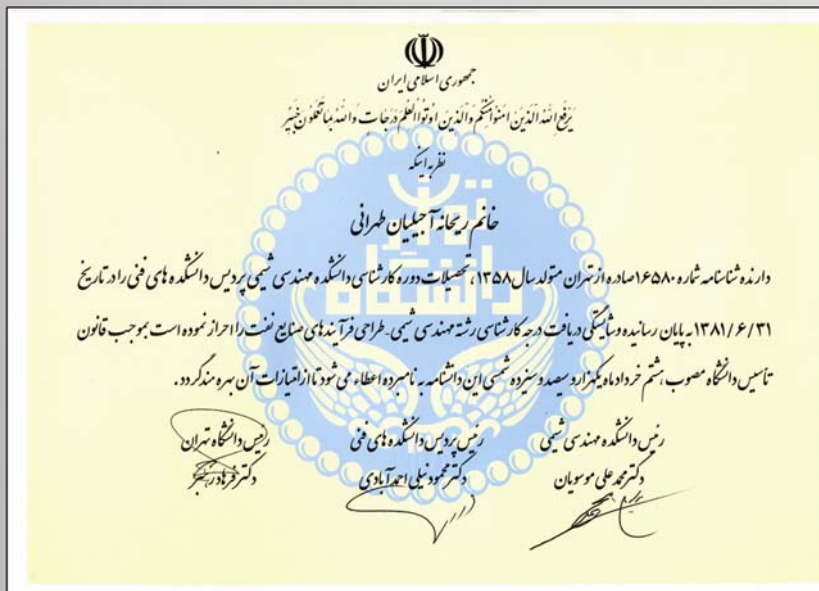 جمهوری اسلامی ایران
یرفع الله الذین امنوا منکم والذین اوتوا العلم درجات والله بما تعملون خبیر
نظر به اینکه
خانم ریحانه آجیلیان طهرانی
دارنده شناسنامه شماره ۱۶۵۸۰ صادره از تهران متولد سال ۱۳۵۸، تحصیلات دوره کارشناسی دانشکده مهندسی شیمی پردیس دانشکده های فنی را در تاریخ
۱۳۸۱/۶/۳۱ به پایان رسانیده و شایستگی دریافت درجه کارشناسی رشته مهندسی شیمی - طراحی فرآیندهای صنایع نفت را احراز نموده است بموجب قانون
تأسیس دانشگاه مصوب هشتم خرداد ماه یکهزار و سیصد و سیزده شمسی این دانشنامه به نامبرده اعطاء می شود تا از امتیازات آن بهره مند گردد.
رئیس دانشکده مهندسی شیمی رئیس پردیس دانشکده های فنی رئیس دانشگاه تهران
دکتر محمد علی موسویان دکتر محمود نیلی احمدآبادی دکتر فرهاد رهبر